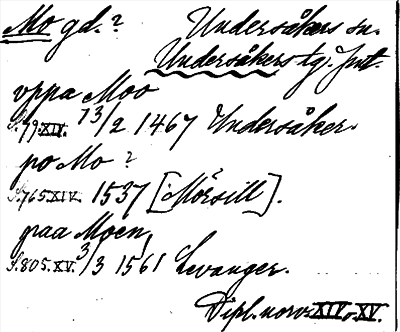 Mo gd.? Undersåkers sn.
Undersåkers tg. Jmt.
vppa Moo
S. 79. XIV. 13/2 1467 Undersåker.
po Mo ?
S. 765. XIV. 1537 [Mörsill].
paa Moen,
S. 805. XV. 3/3 1561 Levanger.
Dipl. norv. XIV, XV.